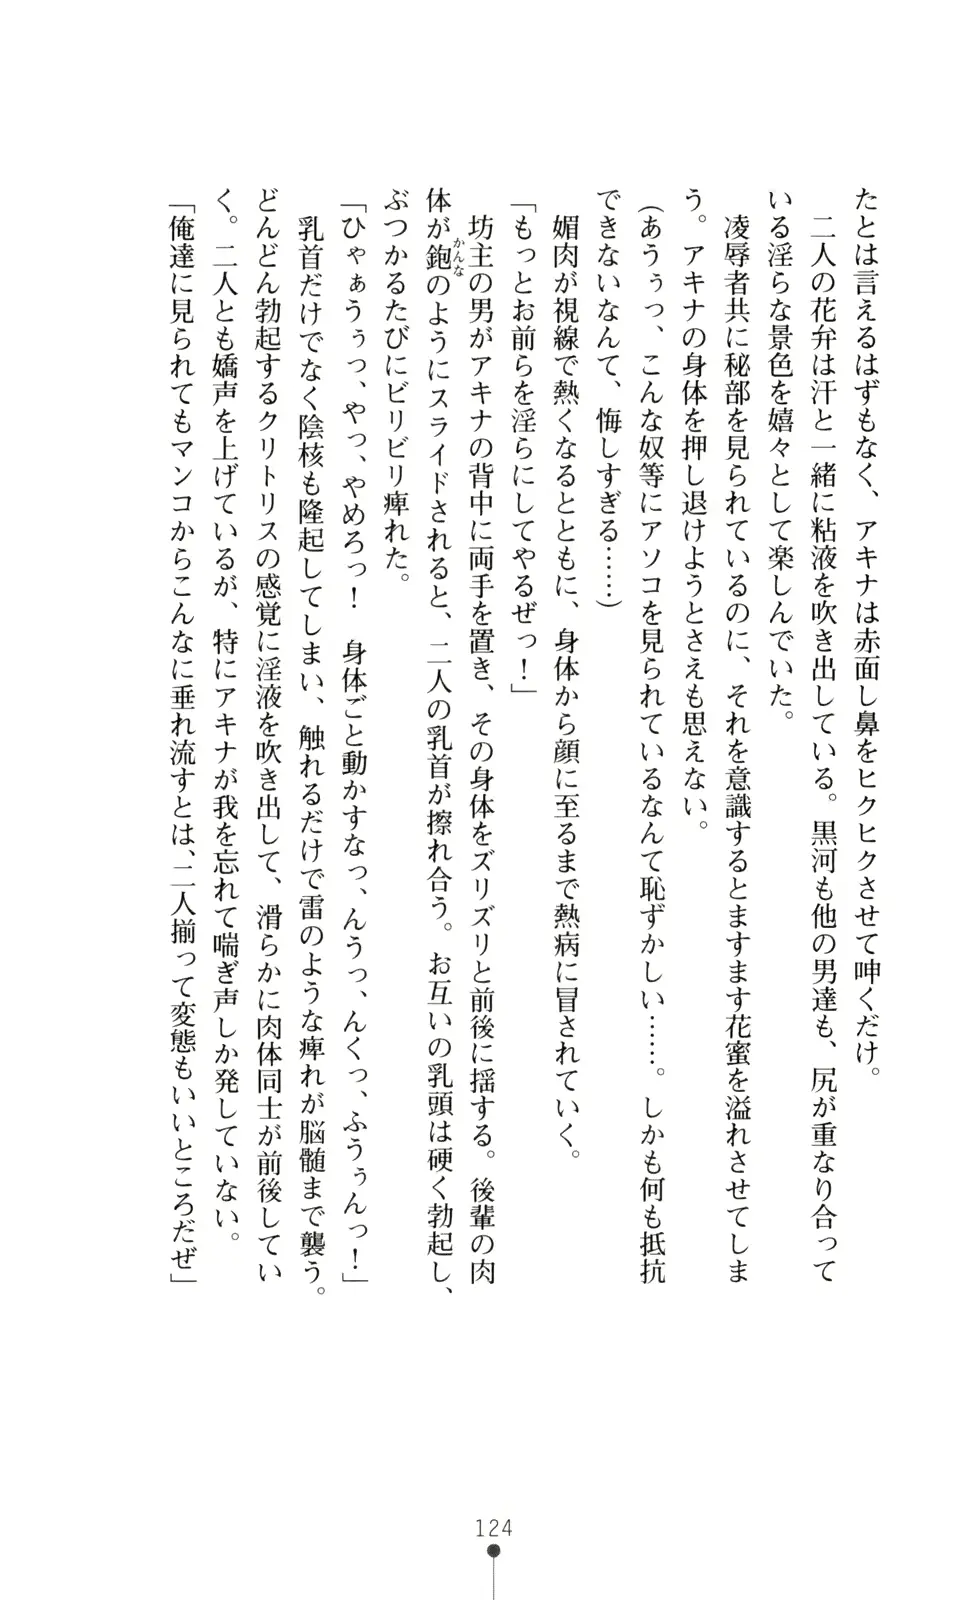 たとは言えるはずもなく、アキナは赤面し鼻をヒクヒクさせて呻くだけ。
二人の花弁は汗と一緒に粘液を吹き出している。黒河も他の男達も、尻が重なり合って
いる淫らな景色を嬉々として楽しんでいた。
凌辱者共に秘部を見られているのに、それを意識するとますます花蜜を溢れさせてしま
う。アキナの身体を押し退けようとさえも思えない。
(あうぅっ、こんな奴等にアソコを見られているなんて恥ずかしい……。しかも何も抵抗
できないなんて、悔しすぎる……)
媚肉が視線で熱くなるとともに、身体から顔に至るまで熱病に冒されていく。
「もっとお前らを淫らにしてやるぜっ！」
坊主の男がアキナの背中に両手を置き、その身体をズリズリと前後に揺する。後輩の肉
体が鉋かんなのようにスライドされると、二人の乳首が擦れ合う。お互いの乳頭は硬く勃起し、
ぶつかるたびにビリビリ痺れた。
「ひゃぁうぅっ、やっ、やめろっ！　身体ごと動かすなっ、んうっ、んくっ、ふうぅんっ！」
乳首だけでなく陰核も隆起してしまい、触れるだけで雷のような痺れが脳髄まで襲う。
どんどん勃起するクリトリスの感覚に淫液を吹き出して、滑らかに肉体同士が前後してい
く。二人とも嬌声を上げているが、特にアキナが我を忘れて喘ぎ声しか発していない。
「俺達に見られてもマンコからこんなに垂れ流すとは、二人揃って変態もいいところだぜ」
124